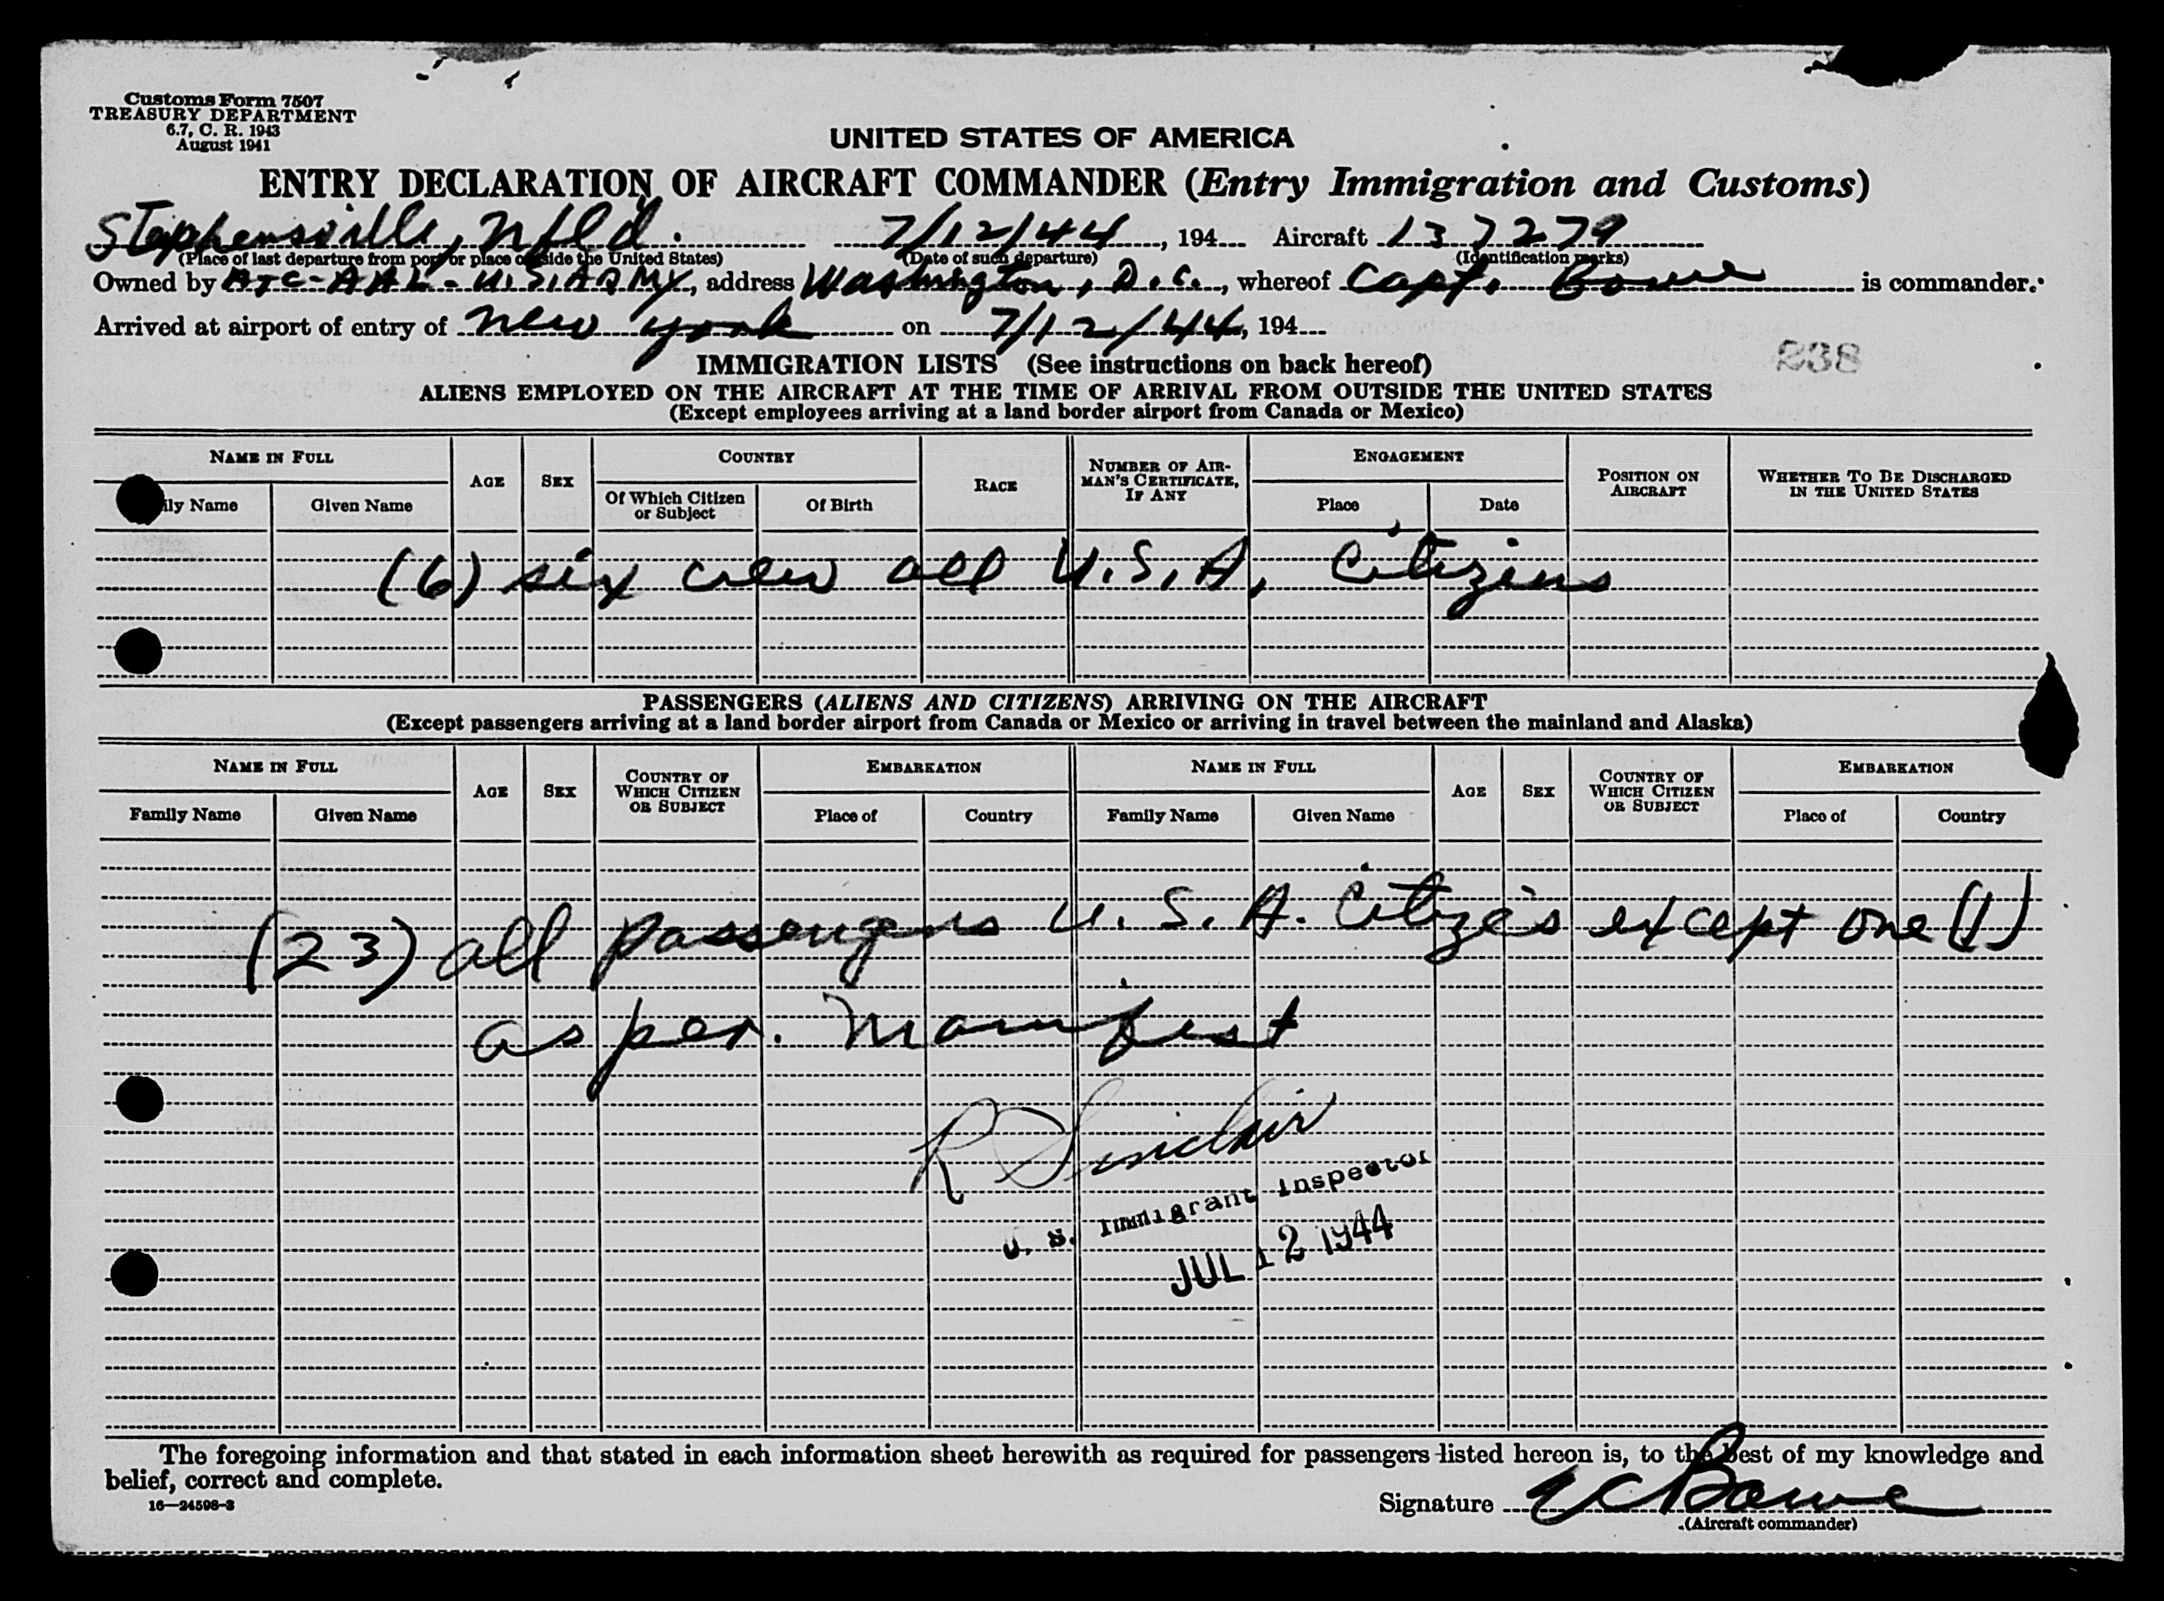 Customs Form 7507
TREASURY DEPARTMENT
6.7, C. R. 1943
August 1941
UNITED STATES OF AMERICA
ENTRY DECLARATION OF AIRCRAFT COMMANDER (Entry Immigration and Customs)
Stephensville, Nfld. 7/12/44, 194 Aircraft 137279
(Place of last departure from port or place outside the United States) (Date of such departure) (Identification marks)
Owned by ATC-AAL-U.S. ARMY, address Washington, D.C., whereof Capt. Bowe is commander.
Arrived at airport of entry of New York on 7/12/44, 194
IMMIGRATION LISTS (See instructions on back hereof)
238
ALIENS EMPLOYED ON THE AIRCRAFT AT THE TIME OF ARRIVAL FROM OUTSIDE THE UNITED STATES
(Except employees arriving at a land border airport from Canada or Mexico)
NAME IN FULL AGE SEX COUNTRY RACE NUMBER OF AIRMAN'S CERTIFICATE, IF ANY ENGAGEMENT POSITION ON AIRCRAFT WHETHER TO BE DISCHARGED IN THE UNITED STATES
ily Name Given Name Of Which Citizen or Subject Of Birth Place Date
(6) six crew all U.S.A. Citizens
PASSENGERS (ALIENS AND CITIZENS) ARRIVING ON THE AIRCRAFT
(Except passengers arriving at a land border airport from Canada or Mexico or arriving in travel between the mainland and Alaska)
NAME IN FULL AGE SEX COUNTRY OF WHICH CITIZEN OR SUBJECT EMBARKATION NAME IN FULL AGE SEX COUNTRY OF WHICH CITIZEN OR SUBJECT EMBARKATION
Family Name Given Name Place of Country Family Name Given Name Place of Country
(23) all passengers U.S.A. Citize's except one (1)
as per. Manifest
R Sinclair
U. S. Immigrant Inspector
JUL 12 1944
The foregoing information and that stated in each information sheet herewith as required for passengers listed hereon is, to the best of my knowledge and
belief, correct and complete.
16—24598-3
Signature EC Bowe
(Aircraft commander)